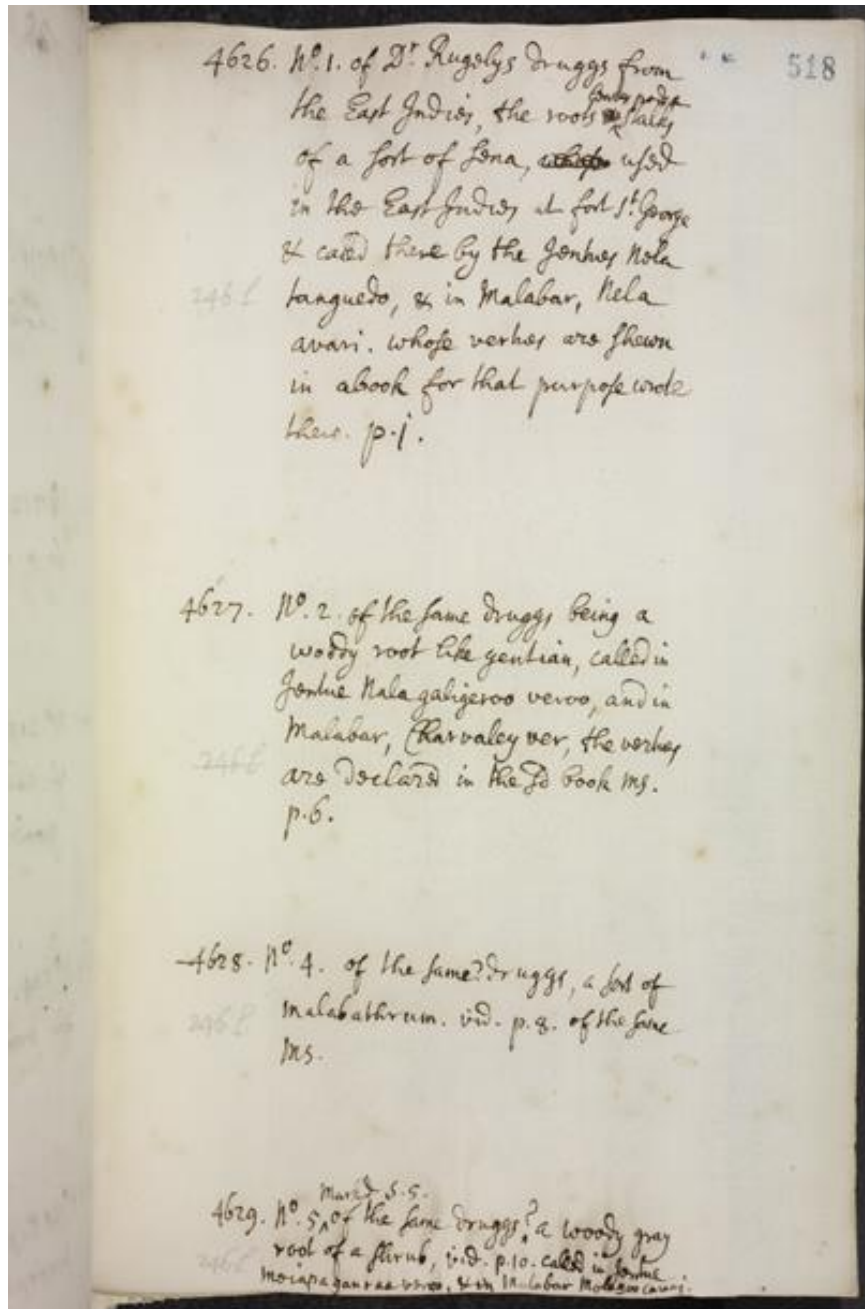 518
4626. No. 1. of Dr. Rugelys druggs from
the East Indies, the roots leaves pods & stalks
of a sort of sena, used
in the East Indies at fort St. George
& caled there by the Jentues Nela
tanguedo, & in Malabar, Nela
avari. whose vertues are shewn
in a book for that purpose wrote
there. p. j.
4627. No. 2. of the same druggs being a
woody root like gentian, called in
Jentue Nala galigeroo veroo, and in
Malabar, Charvaley ver, the vertues
are declared in the sd book ms.
p. 6.
4628. No. 4. of the same? druggs, a sort of
malabathrum. vid. p. 8. of the same
ms.
Marked 5.5.
4629. No. 5 of the same druggs? a woody gray
root of a shrub, vid. p. 10. caled in Jentue
veroo, & in Malabar
246f
246f
246f
246f